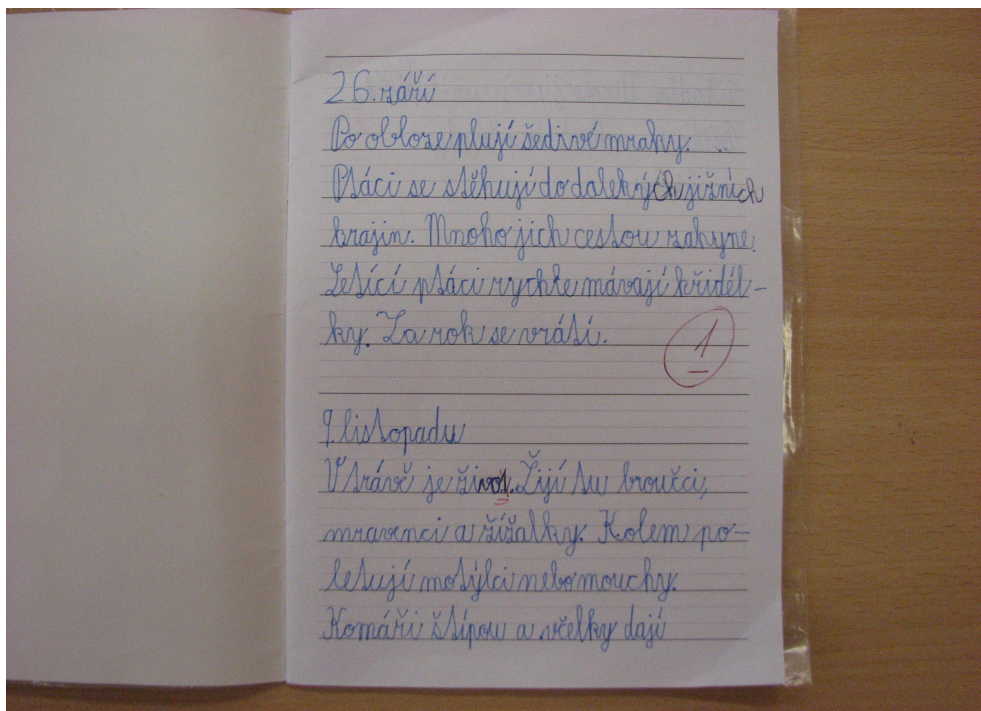 26. září
Po obloze plují šedivé mraky.
Ptáci se stěhují do dalekých jižních
krajin. Mnoho jich cestou zahyne.
Letící ptáci rychle mávají křidél-
ky. Za rok se vrátí.
1
9. listopadu
V trávě je život. Žijí tu broučci,
mravenci a žížalky. Kolem po-
letují motýlci nebo mouchy.
Komáři štípou a včelky dají